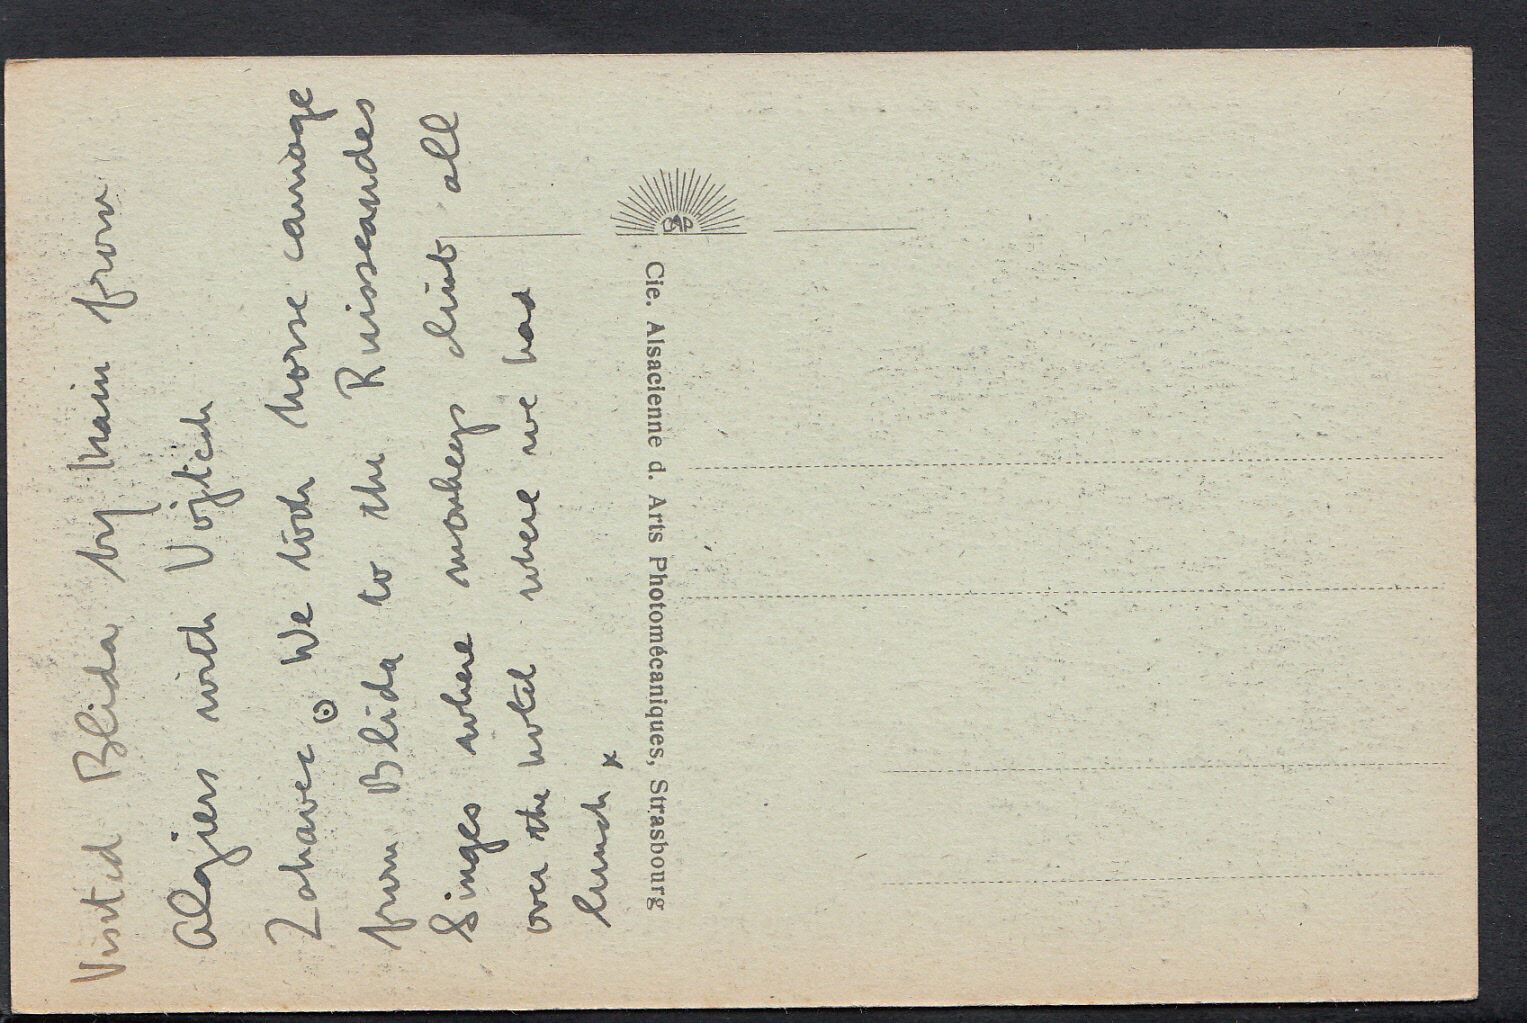 Visited Blida by train from
Algiers with Vojtech
We took horse carriage
from Blida to the Ruisseau des
Singes where monkeys climb all
over the hotel where we had
lunch x
CAP
Cie. Alsacienne d. Arts Photomécaniques, Strasbourg